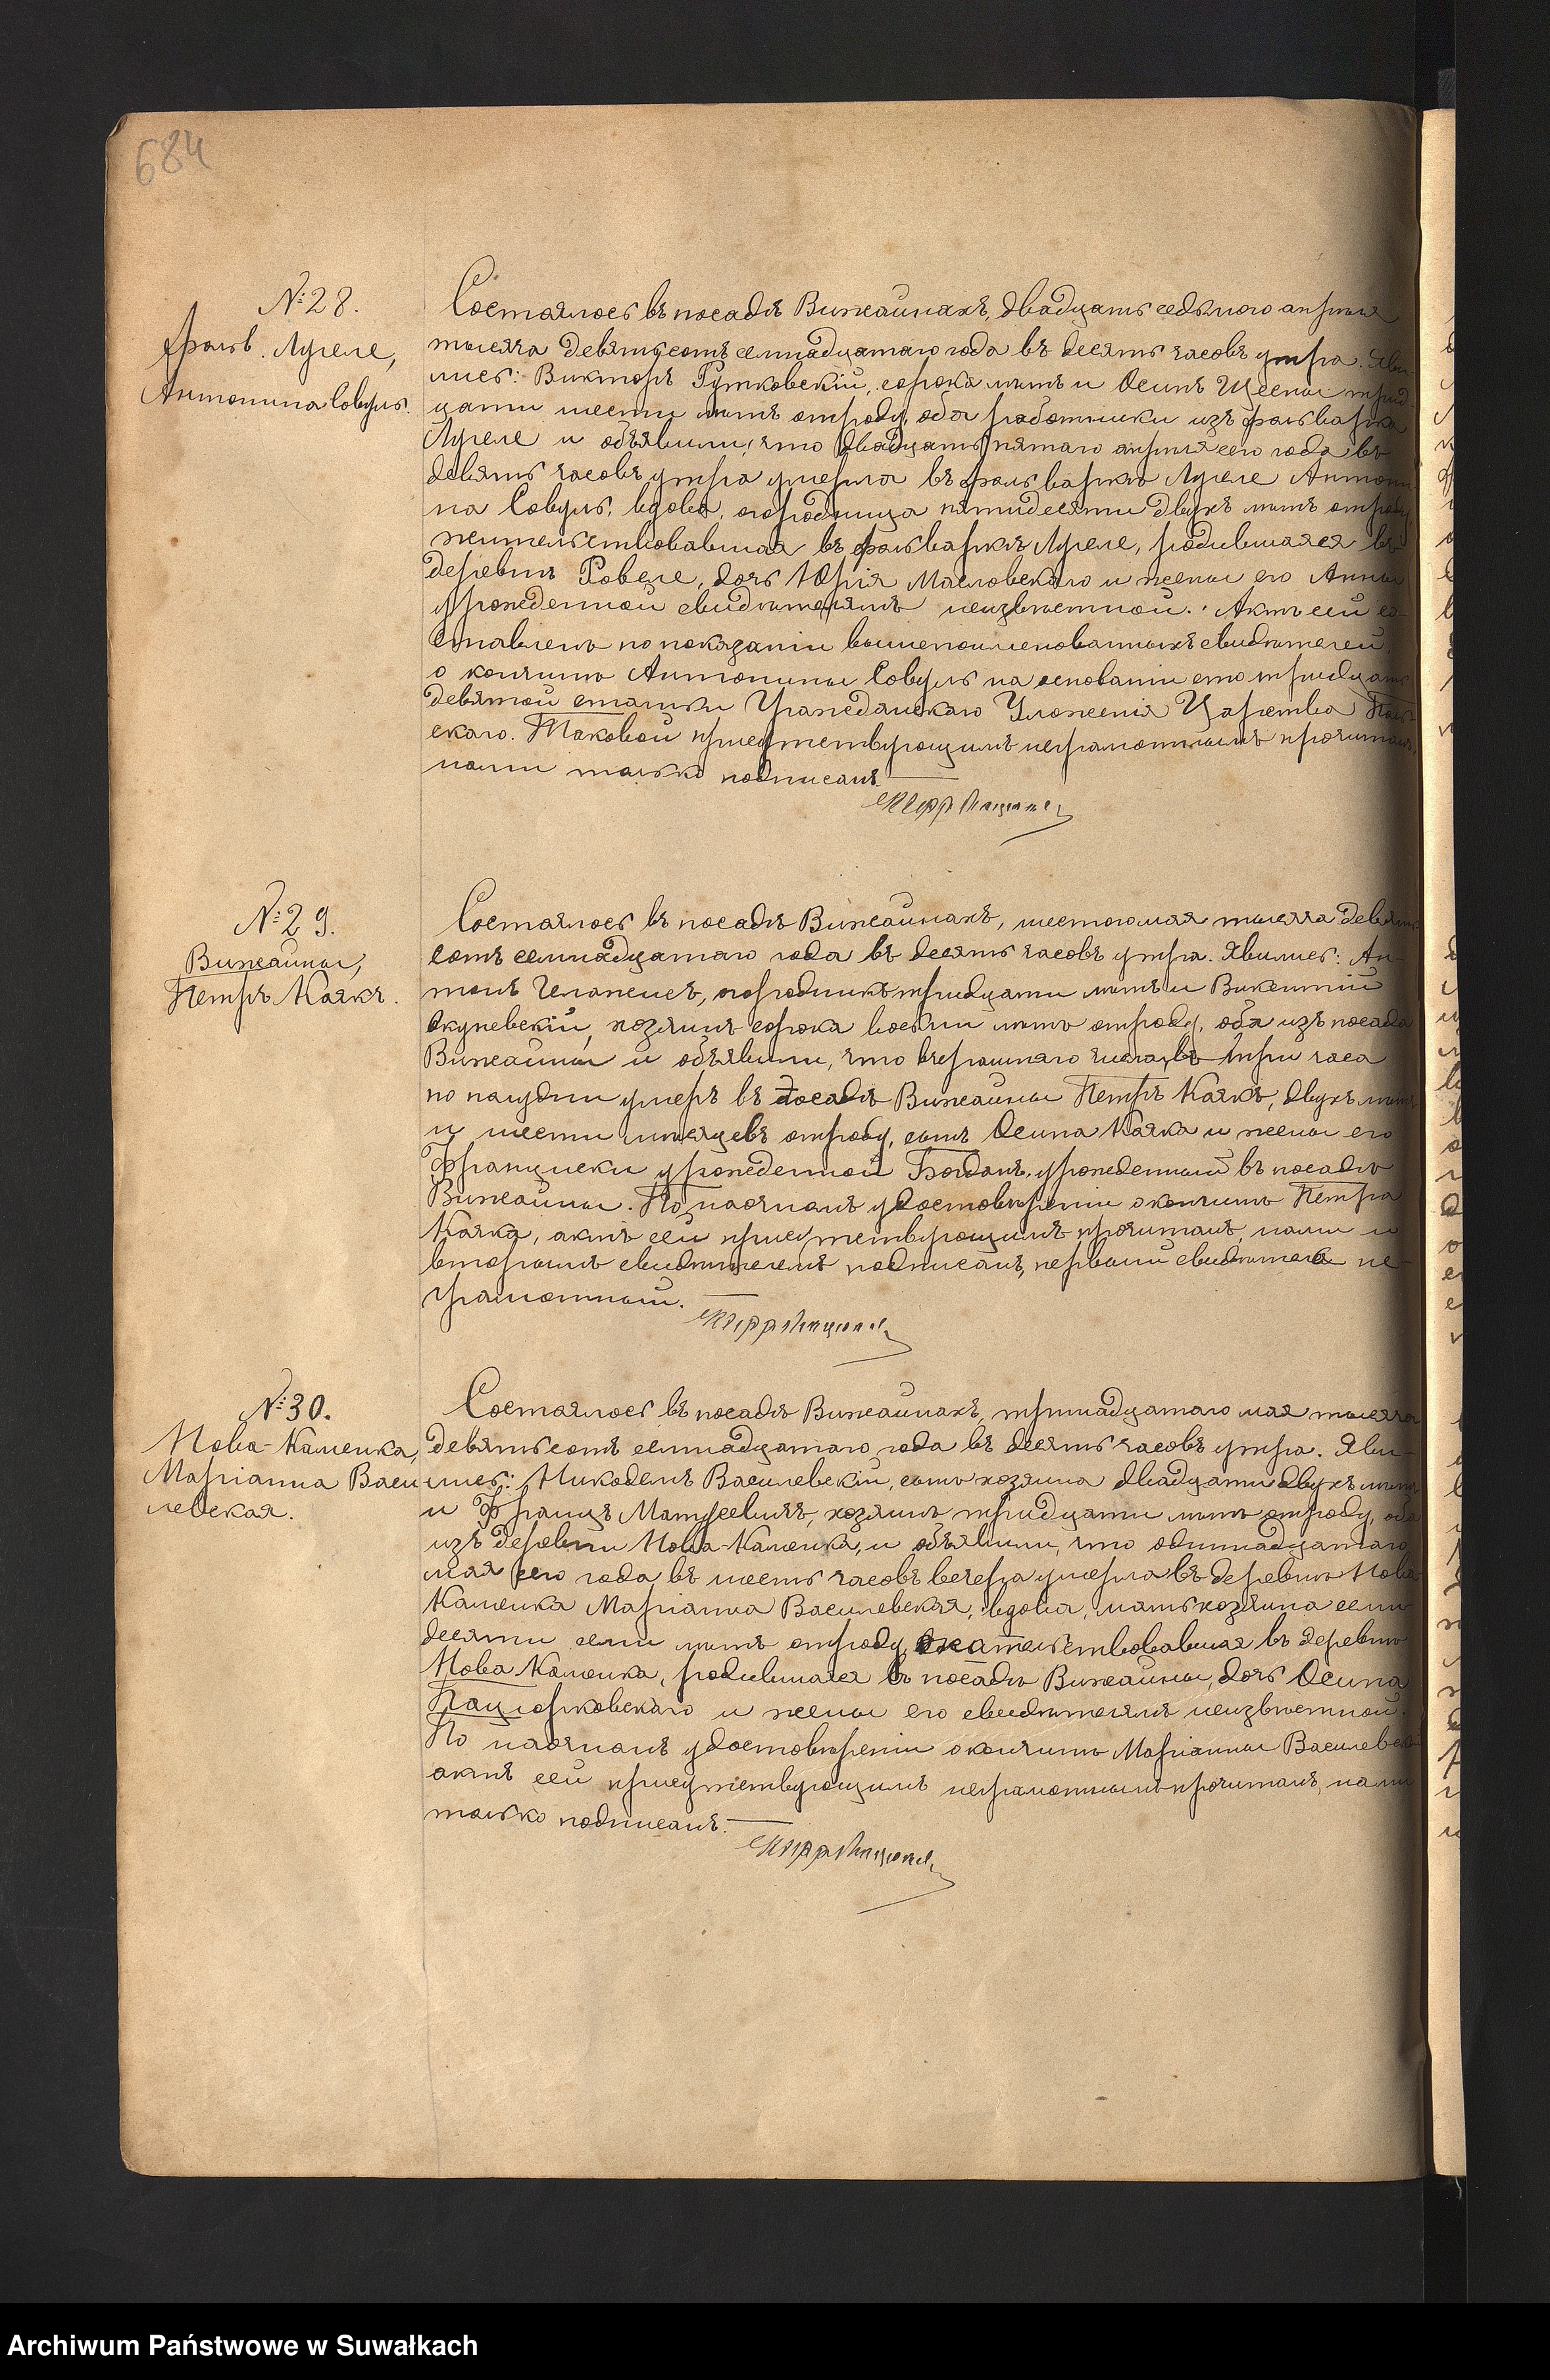 684
№ 28.
фольв. Лугеле,
Антонина Совуль.
Состоялось въ посадѣ Вижайнахъ, двадцать седьмого апрѣля
тысяча девятьсотъ семнадцатаго года въ десять часовъ утра. Яви-
лись: Викторъ Рутковскій, сорока лѣтъ и Осипъ Щесны трид
цати шести лѣтъ отроду, оба работники изъ фольварка
Лугеле и объявили, что двадцать пятаго апрѣля сего года въ
девять часовъ утра умерла въ фольваркѣ Лугеле Антони
на Совуль, вдова, огородница пятидесяти двухъ лѣтъ отроду,
жительствовавшая въ фольваркѣ Лугеле, родившаяся въ
деревнѣ Ровеле, дочь Юрія Масловскаго и жены его Анны
урожденной свидѣтелямъ неизвѣстной. Актъ сей со
ставленъ по показаніи вышепоименованныхъ свидѣтелей
о кончинѣ Антонины Совуль на основаніи сто тридцать
девятой статьи Гражданскаго Уложенія Царства Поль
скаго. Таковой присутствующимъ неграмотнымъ прочитанъ,
нами только подписанъ.
№ 29.
Вижайны,
Петръ Каякъ.
Состоялось въ посадѣ Вижайнахъ, шестого мая тысяча девять
сотъ семнадцатаго года въ десять часовъ утра. Явились: Ан-
тонъ, огородникъ тридцати лѣтъ и Викентій
Окуневскій, хозяинъ сорока восьми лѣтъ отроду, оба изъ посада
Вижайны и объявили, что вчерашняго числа, въ три часа
по полудни умеръ въ посадѣ Вижайны Петръ Каякъ, двухъ лѣтъ
и шести мѣсяцевъ отроду, сынъ Осипа Каяка и жены его
Францишки урожденной Богданъ, урожденный въ посадѣ
Вижайны. По наочномъ удостовѣреніи о кончинѣ Петра
Каяка, актъ сей присутствующимъ прочитанъ, нами и
вторымъ свидѣтелемъ подписанъ, первый свидѣтель не
грамотный.
№ 30.
Нова-Каменка,
Маріанна Васи
левская.
Состоялось въ посадѣ Вижайнахъ, тринадцатаго мая тысяча
девятьсотъ семнадцатаго года въ десять часовъ утра. Яви-
лись: Никодемъ Василевскій, сынъ хозяина двадцати двухъ лѣтъ
и Францъ Матусевичъ, хозяинъ тридцати лѣтъ отроду, оба
изъ деревни Нова-Каменка, и объявили, что одиннадцатаго
мая сего года въ шесть часовъ вечера умерла въ деревнѣ Нова
Каменка Маріанна Василевская, вдова, мать хозяина семи
десяти семи лѣтъ отроду, жительствовавшая въ деревнѣ
Нова Каменка, родившаяся въ посадѣ Вижайны, дочь Осипа
Пацюрковскаго и жены его свидѣтелямъ неизвѣстной.
По наочномъ удостовѣреніи о кончинѣ Маріанны Василевской
актъ сей присутствующимъ неграмотнымъ прочитанъ, нами
только подписанъ.
Archiwum Państwowe w Suwałkach